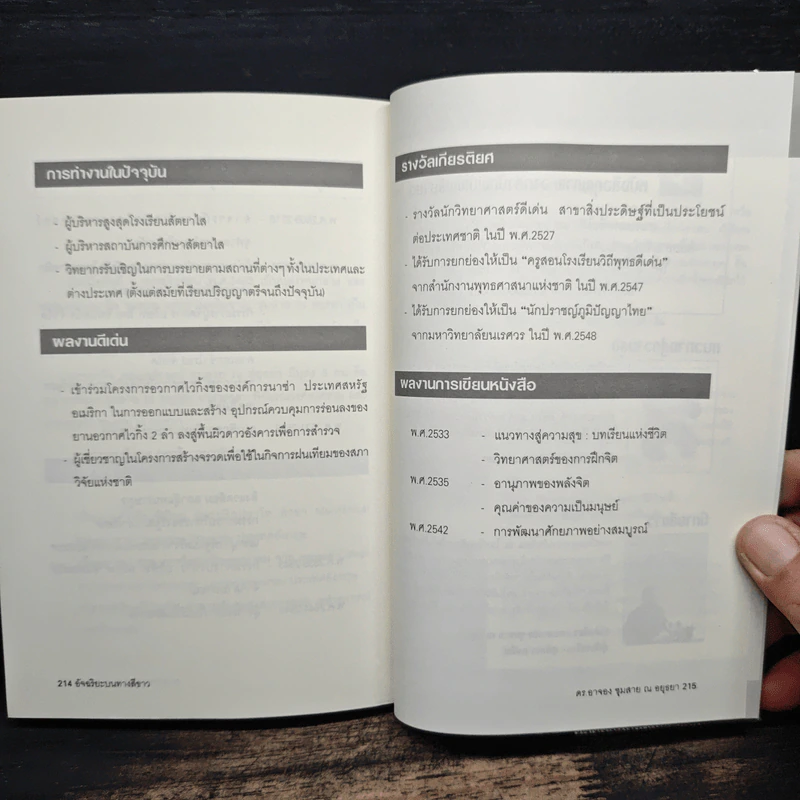 การทำงานในปัจจุบัน
- ผู้บริหารสูงสุดโรงเรียนสัตยาไส
- ผู้บริหารสถาบันการศึกษาสัตยาไส
- วิทยากรรับเชิญในการบรรยายตามสถานที่ต่างๆ ทั้งในประเทศและ
ต่างประเทศ (ตั้งแต่สมัยที่เรียนปริญญาตรีจนถึงปัจจุบัน)
ผลงานดีเด่น
- เข้าร่วมโครงการอวกาศไวกิ้งขององค์การนาซ่า ประเทศสหรัฐ
อเมริกา ในการออกแบบและสร้าง อุปกรณ์ควบคุมการร่อนลงของ
ยานอวกาศไวกิ้ง 2 ลำ ลงสู่พื้นผิวดาวอังคารเพื่อการสำรวจ
- ผู้เชี่ยวชาญในโครงการสร้างจรวดเพื่อใช้ในกิจการฝนเทียมของสภา
วิจัยแห่งชาติ
214 อัจฉริยะบนทางสีขาว
รางวัลเกียรติยศ
- รางวัลนักวิทยาศาสตร์ดีเด่น สาขาสิ่งประดิษฐ์ที่เป็นประโยชน์
ต่อประเทศชาติ ในปี พ.ศ.2527
- ได้รับการยกย่องให้เป็น "ครูสอนโรงเรียนวิถีพุทธดีเด่น"
จากสำนักงานพุทธศาสนาแห่งชาติ ในปี พ.ศ.2547
- ได้รับการยกย่องให้เป็น "นักปราชญ์ภูมิปัญญาไทย"
จากมหาวิทยาลัยนเรศวร ในปี พ.ศ.2548
ผลงานการเขียนหนังสือ
พ.ศ.2533 - แนวทางสู่ความสุข : บทเรียนแห่งชีวิต
- วิทยาศาสตร์ของการฝึกจิต
พ.ศ.2535 - อานุภาพของพลังจิต
- คุณค่าของความเป็นมนุษย์
พ.ศ.2542 - การพัฒนาศักยภาพอย่างสมบูรณ์
ดร.อาจอง ชุมสาย ณ อยุธยา 215